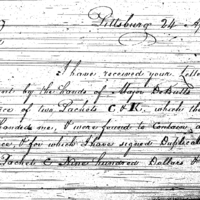 Pittsburg 24
I have received your Lette
by the hands of Major
of two Packets C & K, which the
handed me, I were found to Contain a
for which I have signed Duplicat
Packet C Nine hundred Dollars